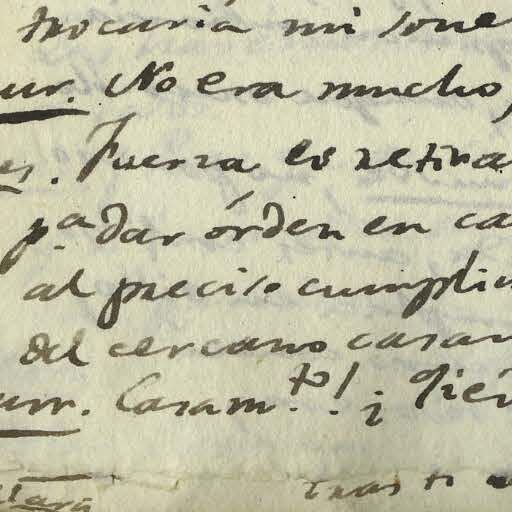 trocaria mi sone
ur. No era mucho,
es. Fuerza es retira
p.a dar órden en ca
al preciso cumplim
del cercano casam
urr. Casam.to! ¡
tras ti